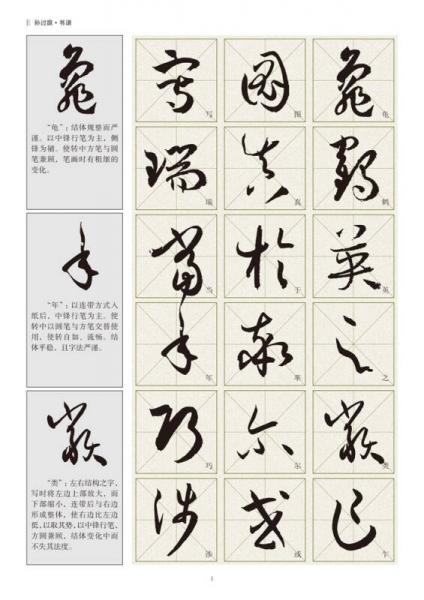 孙过庭·书谱
龟
“龟”：结体规整而严
谨。以中锋行笔为主，侧
锋为辅。使转中方笔与圆
笔兼顾，笔画时有粗细的
变化。
年
“年”：以连带方式入
纸后，中锋行笔为主。使
转中以圆笔与方笔交替使
用，使转自如、流畅。结
体平稳，且字法严谨。
类
“类”：左右结构之字，
写时将左边上部放大，而
下部缩小，连带后与右边
形成整体，使右边比左边
低，以取其势，以中锋行笔、
方圆兼顾，结体变化中而
不失其法度。
龟
鹤
英
之
类
乍
图
真
于
率
尔
或
写
瑞
当
年
巧
涉
1